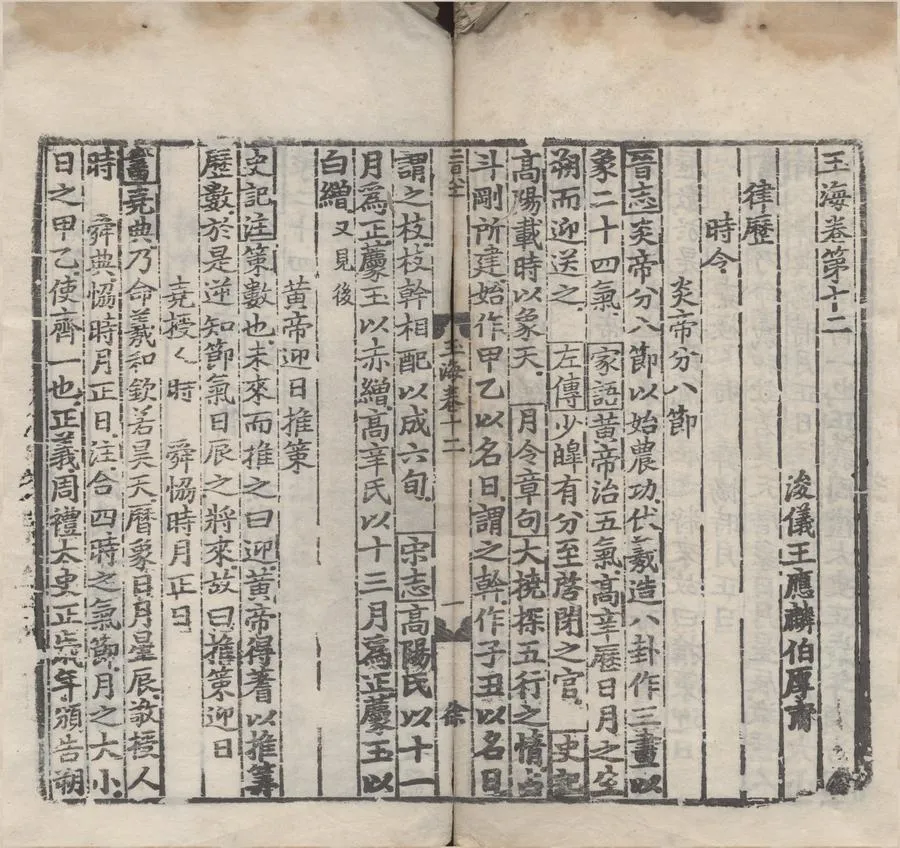 玉海卷第十二
浚儀王應麟伯厚甫
律歷
時令
炎帝分八節
晉志炎帝分八節以始農功伏羲造八卦作三畫以
象二十四氣 家語黃帝治五氣高辛歷日月之生
朔而迎送之 左傳少皥有分至啓閉之官 史記
高陽載時以象天 月令章句大撓探五行之情占
斗剛所建始作甲乙以名日謂之幹作子丑以名日
玉海卷十二
一
徐
謂之枝枝幹相配以成六旬 宋志高陽氏以十一
月爲正薦玉以赤繒高辛氏以十三月爲正薦玉以
白繒又見後
黃帝迎日推策
史記注策數也未來而推之曰迎黃帝得蓍以推筭
歷數於是逆知節氣日辰之將來故曰推策迎日
堯授人時 舜恊時月正日
書堯典乃命羲和欽若昊天曆象日月星辰敬授人
時 舜典恊時月正日注合四時之氣節月之大小
日之甲乙使齊一也正義周禮太史正歲年頒告朔